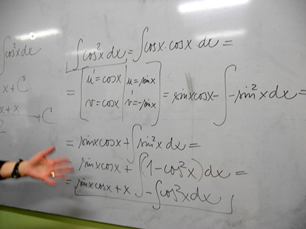 ∫cos²x
x + C
x + x
+ C
∫cos²x dx = ∫cosx · cosx dx =
= [u' = cosx | u = sinx
v = cosx | v' = -sinx] = sinxcosx - ∫-sin²x dx =
= sinxcosx + ∫sin²x dx =
= sinxcosx + ∫(1 - cos²x) dx =
= sinxcosx + x - ∫cos²x dx